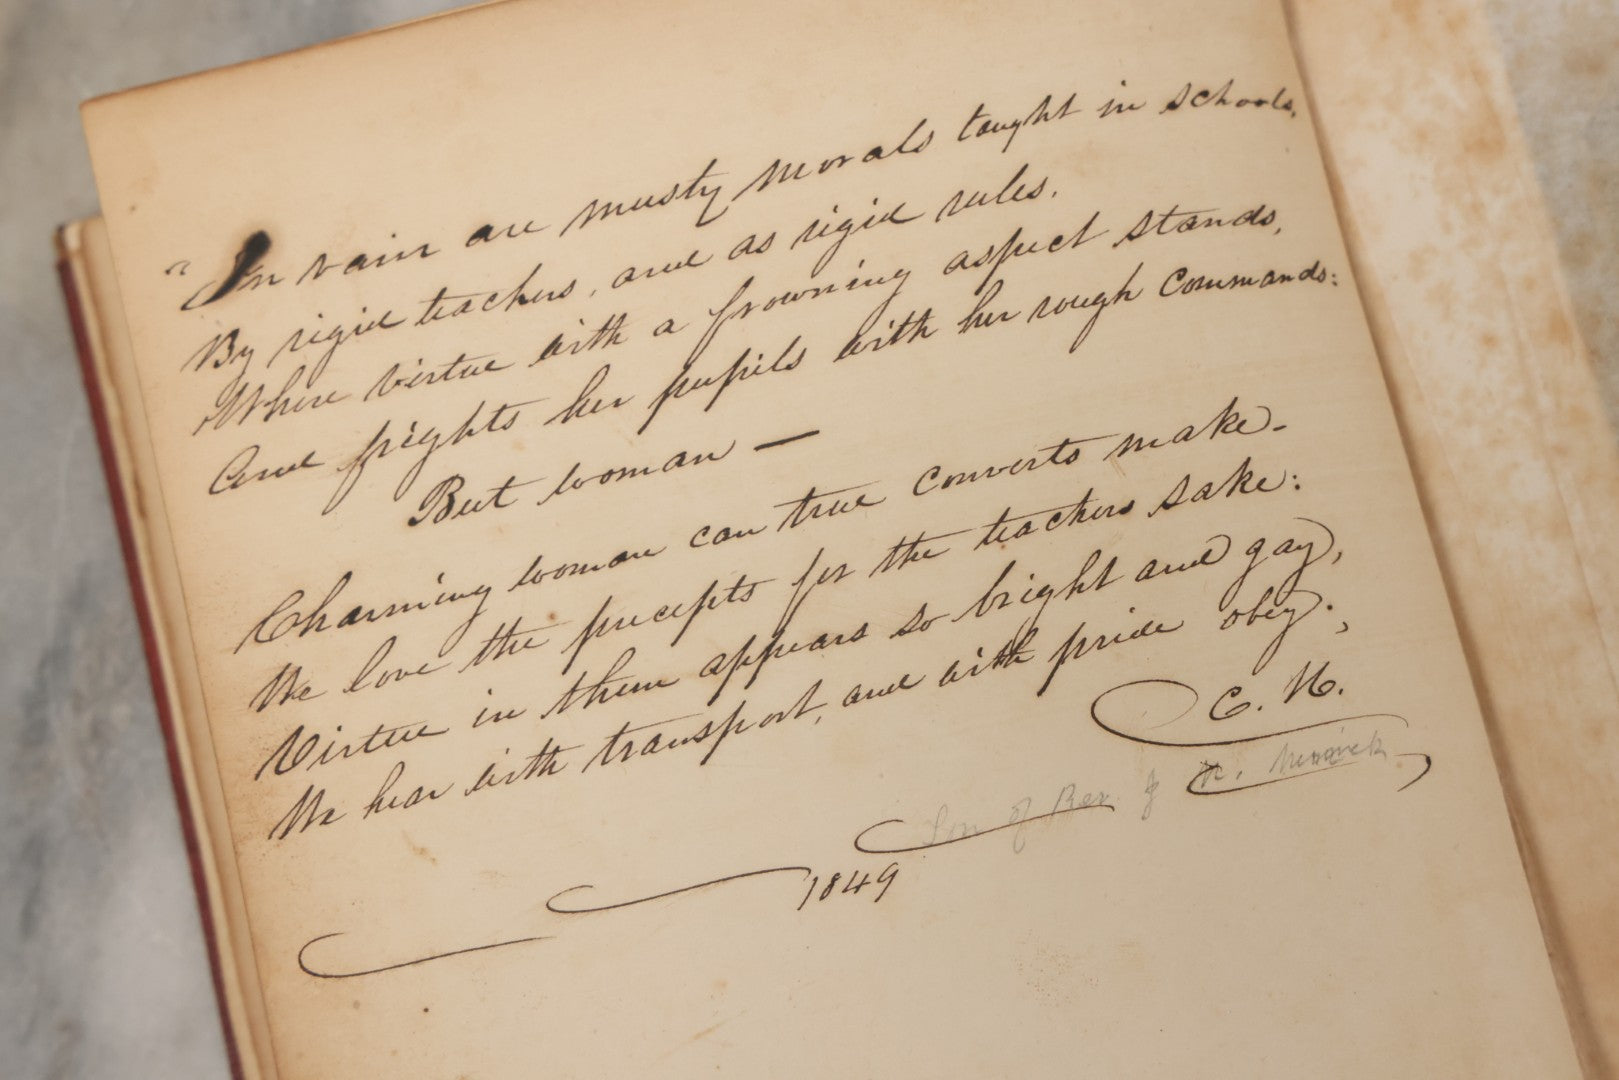 "In vain are musty morals taught in schools,
By rigid teachers, and as rigid rules.
Where virtue with a frowning aspect stands,
And frights her pupils with her rough commands:
But woman —
Charming woman can true converts make-
We love the precepts for the teachers sake:
Virtue in them appears so bright and gay,
We hear with transport, and with pride obey.;
C. N.
Son of Rev. J
1849